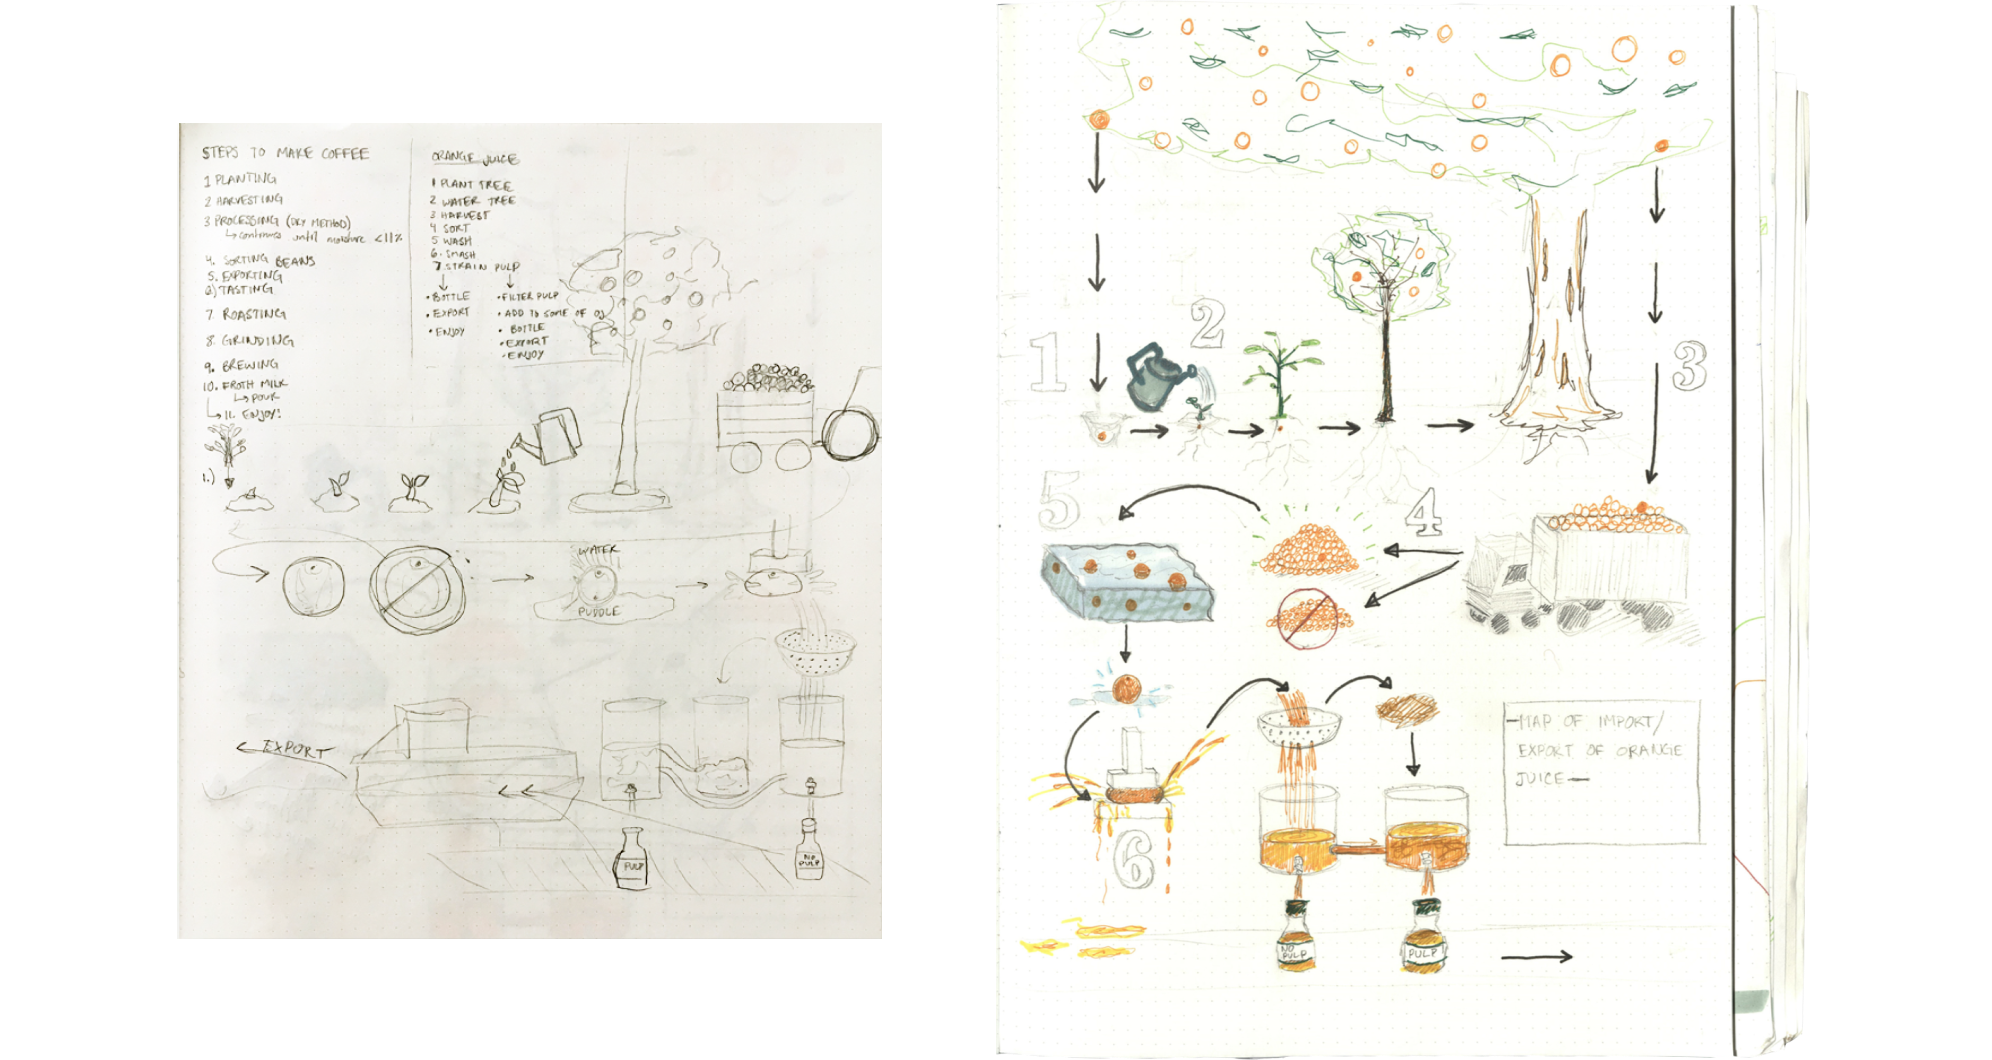 STEPS TO MAKE COFFEE
1 PLANTING
2 HARVESTING
3 PROCESSING (DRY METHOD)
↳ continues until moisture <11%
4. SORTING BEANS
5. EXPORTING
6) TASTING
7 ROASTING
8. GRINDING
9. BREWING
10. FROTH MILK
↳ POUR
↳ 11. ENJOY!
1.)
ORANGE JUICE
1 PLANT TREE
2 WATER TREE
3 HARVEST
4 SORT
5 WASH
6. SMASH
7. STRAIN PULP
• BOTTLE
• EXPORT
• ENJOY
• FILTER PULP
• ADD TO SOME OF OJ
• BOTTLE
• EXPORT
• ENJOY
2
WATER
PUDDLE
EXPORT
PULP
NO
PULP
1
2
3
4
5
6
—MAP OF IMPORT/
EXPORT OF ORANGE
JUICE—
NO
PULP
PULP